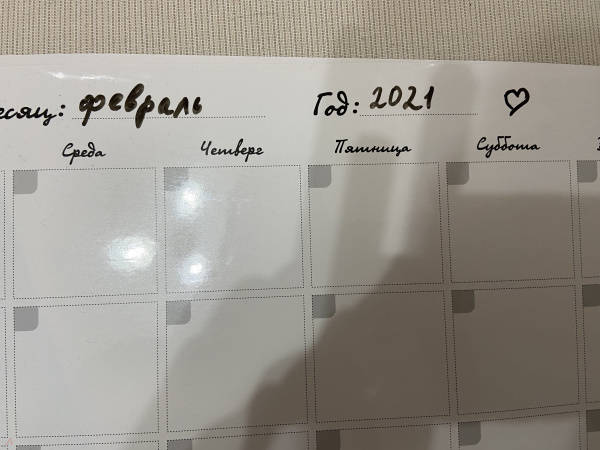 есяц: февраль Год: 2021 ♡
Среда Четверг Пятница Суббота